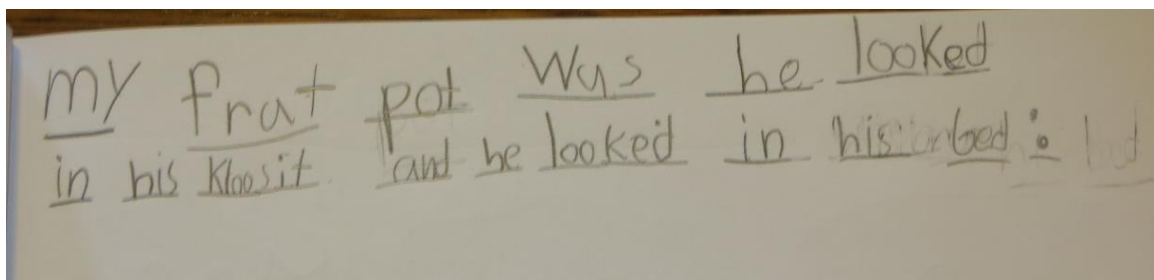 my frat pot was he looked
in his kloosit and he looked in his bed :